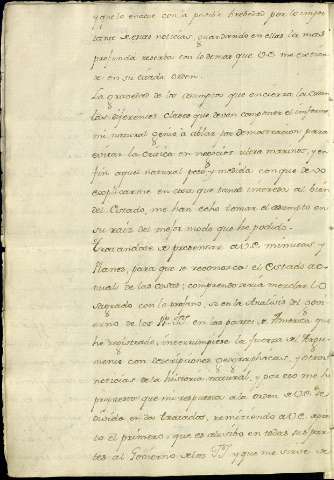 y que lo enseñe con la posible brebedad por lo impor
tante de estas noticias, guardando en ellas la mas
profunda reserba con lo demas que V.E. me extien
de en su citada orden.
La gravedad de los asumptos que encierra las cuen
las diferentes clases que devan componer el informe
mi natural genio a doblar las demostracion para
evitar la critica en negocios ultra marinos, y en
fin aquel natural peso y medida con que devo
explicarme en cosa que tanto interesa al bien
del Estado, me han echo tomar el asumpto en
su raiz del mejor modo que he podido.
Tratandose de presentar a V.E. minutas y
Planes, para que se reconozca el Estado ac
tual de las cosas, comprendo seria mezclar lo
sagrado con lo profano, si en la Analisis del gov
ierno de los en las partes de America que
he registrado, interrumpiese la fuerza de argu
mento con descripciones geographicas, y otras
noticias de la historia natural, y por eso me he
propuesto que mi respuesta a la orden de V.E. se
divida en dos tratados, remitiendo a V.E. aora
el primero, que es alusibo en todas sus par
tes al Govierno de los y que me sirve de